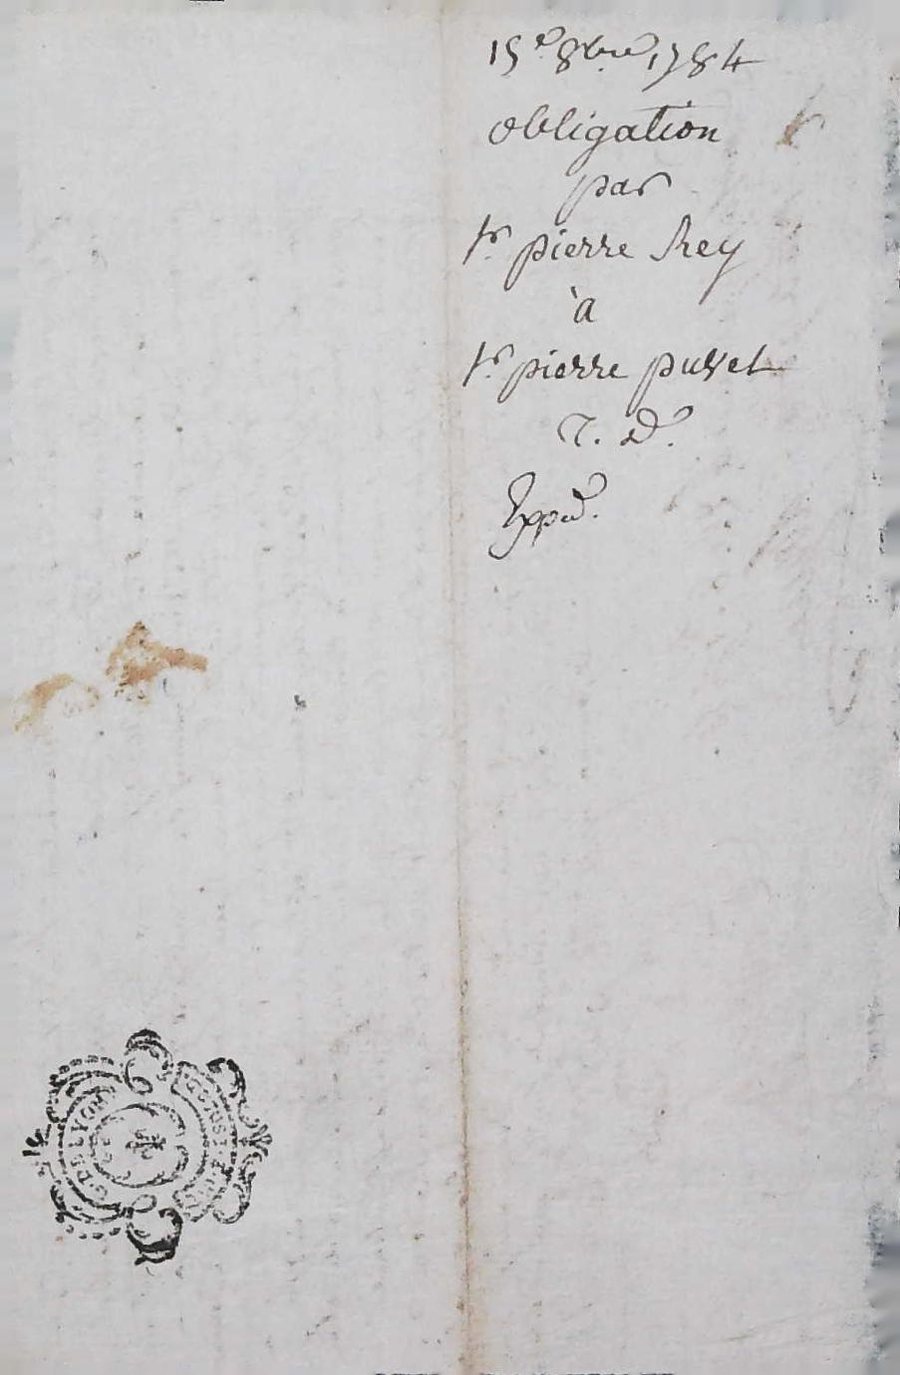 15e 8bre 1784
obligation
par
sr. pierre Rey
à
sr. pierre pusset
Exped.
DE LYON